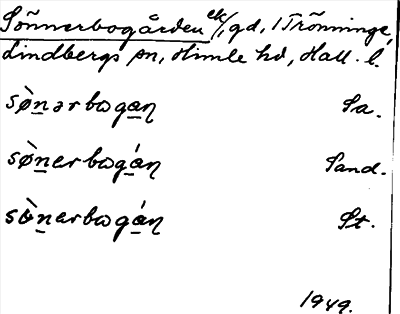 Sönnerbogården ek/, gd, i Trönninge,
Lindbergs sn, Himle hd, Hall. l.
sø̀nərbogan̡ Sa.
sø̀nerbogán̡ Sand.
sø̀nerbogán̡ St.
1949.